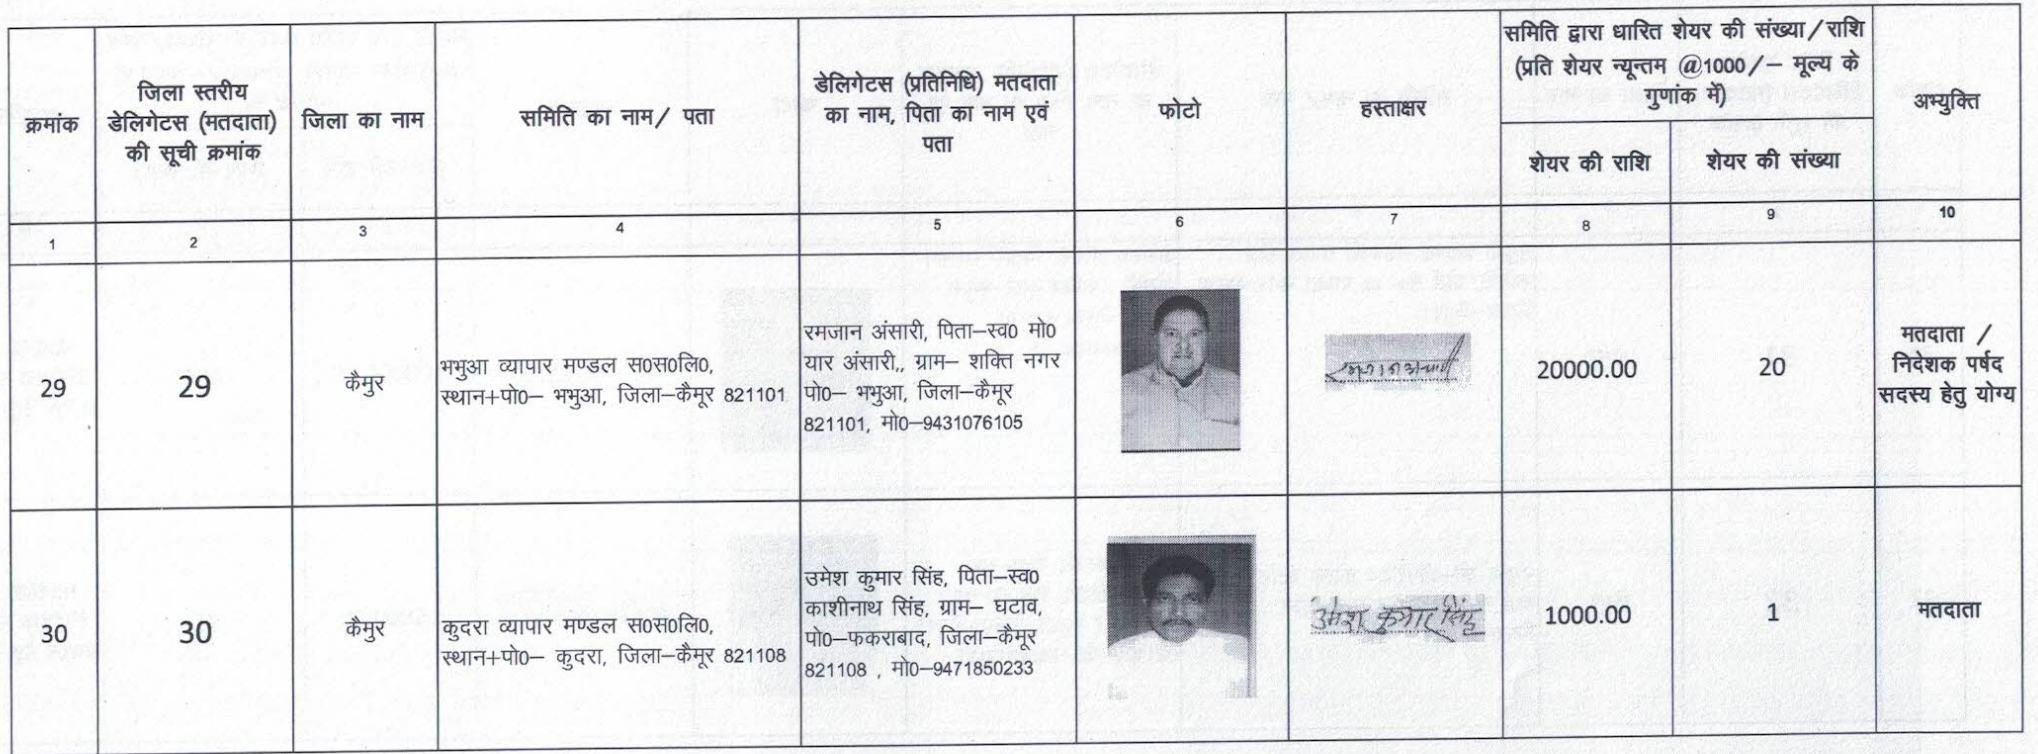 क्रमांक
जिला स्तरीय
डेलिगेटस (मतदाता)
की सूची क्रमांक
जिला का नाम
समिति का नाम/ पता
डेलिगेटस (प्रतिनिधि) मतदाता
का नाम, पिता का नाम एवं
पता
फोटो
हस्ताक्षर
समिति द्वारा धारित शेयर की संख्या/राशि
(प्रति शेयर न्यून्तम @1000/– मूल्य के
गुणांक में)
शेयर की राशि
शेयर की संख्या
अभ्युक्ति
1 2 3 4 5 6 7 8 9 10
29
29
कैमुर
भभुआ व्यापार मण्डल स0स0लि0,
स्थान+पो0– भभुआ, जिला–कैमूर 821101
रमजान अंसारी, पिता–स्व0 मो0
यार अंसारी,, ग्राम– शक्ति नगर
पो0– भभुआ, जिला–कैमूर
821101, मो0–9431076105
20000.00
20
मतदाता /
निदेशक पर्षद
सदस्य हेतु योग्य
30
30
कैमुर
कुदरा व्यापार मण्डल स0स0लि0,
स्थान+पो0– कुदरा, जिला–कैमूर 821108
उमेश कुमार सिंह, पिता–स्व0
काशीनाथ सिंह, ग्राम– घटाव,
पो0–फकराबाद, जिला–कैमूर
821108 , मो0–9471850233
उमेश कुमार सिंह
1000.00
1
मतदाता